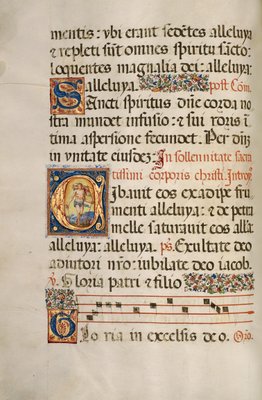 mentis: vbi erant sedētes alleluya
& repleti sūt omnes spiritu sācto:
loquentes magnalia dei: alleluya:
alleluya. post Com̄.
Sancti spiritus dn̄e corda no
stra mundet infusio: & sui roris ī
tima aspersione fecundet. Per dn̄m
in vnitate eiusdeʒ: In sollennitate sacra
tissimi corporis christi. Introyt
Cibauit eos ex adipe fru
menti alleluya: & de petra
melle saturauit eos alla
alleluya: alleluya. ps. Exultate deo
adiutori nr̄o: iubilate deo iacob.
℣. Gloria patri & filio
Gloria in excelsis deo. Oro.